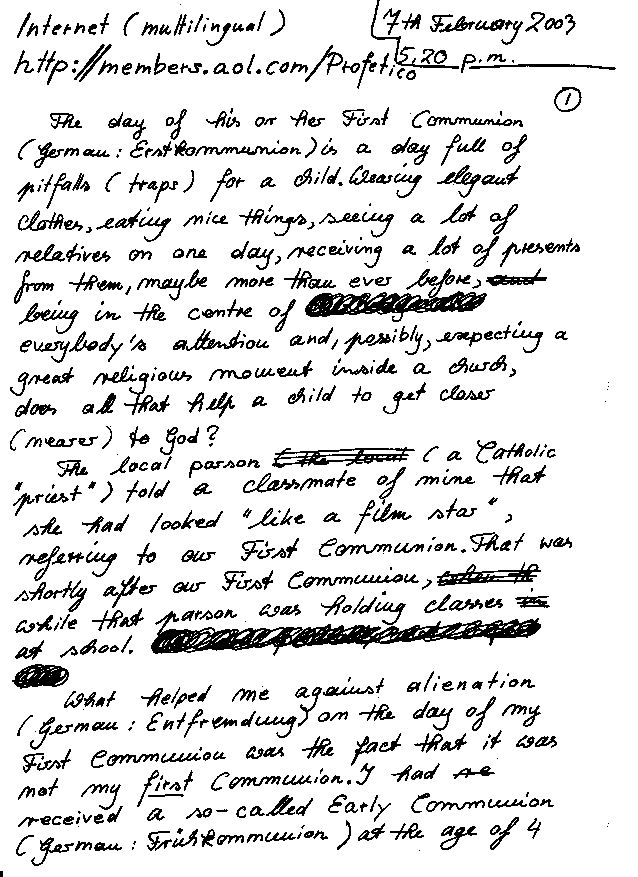 Internet (multilingual)
7th February 2003
http://members.aol.com/Profetico
5,20 p.m.
1
The day of his or her First Communion
(German: Erstkommunion) is a day full of
pitfalls (traps) for a child. Wearing elegant
clothes, eating nice things, seeing a lot of
relatives on one day, receiving a lot of presents
from them, maybe more than ever before, and
being in the centre of
everybody's attention and, possibly, expecting a
great religious moment inside a church,
does all that help a child to get closer
(nearer) to God?
The local parson (the local (a Catholic
"priest") told a classmate of mine that
she had looked "like a film star",
referring to our First Communion. That was
shortly after our First Communion, when th
while that parson was holding classes in
at school.
What helped me against alienation
(German: Entfremdung) on the day of my
First Communion was the fact that it was
not my first Communion. I had re
received a so-called Early Communion
(German: Frühkommunion) at the age of 4